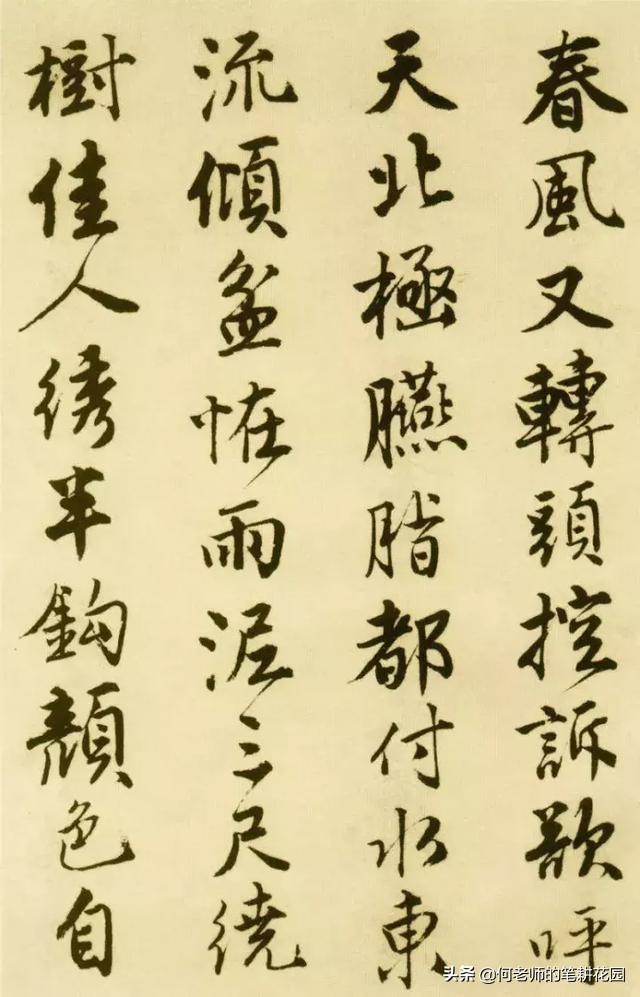 春風又轉頭控訴歌呼
天北極臙脂都付水東
流傾盆怪雨泥三尺繞
樹佳人綉半鈎顏色自
头条 @何老师的笔耕花园